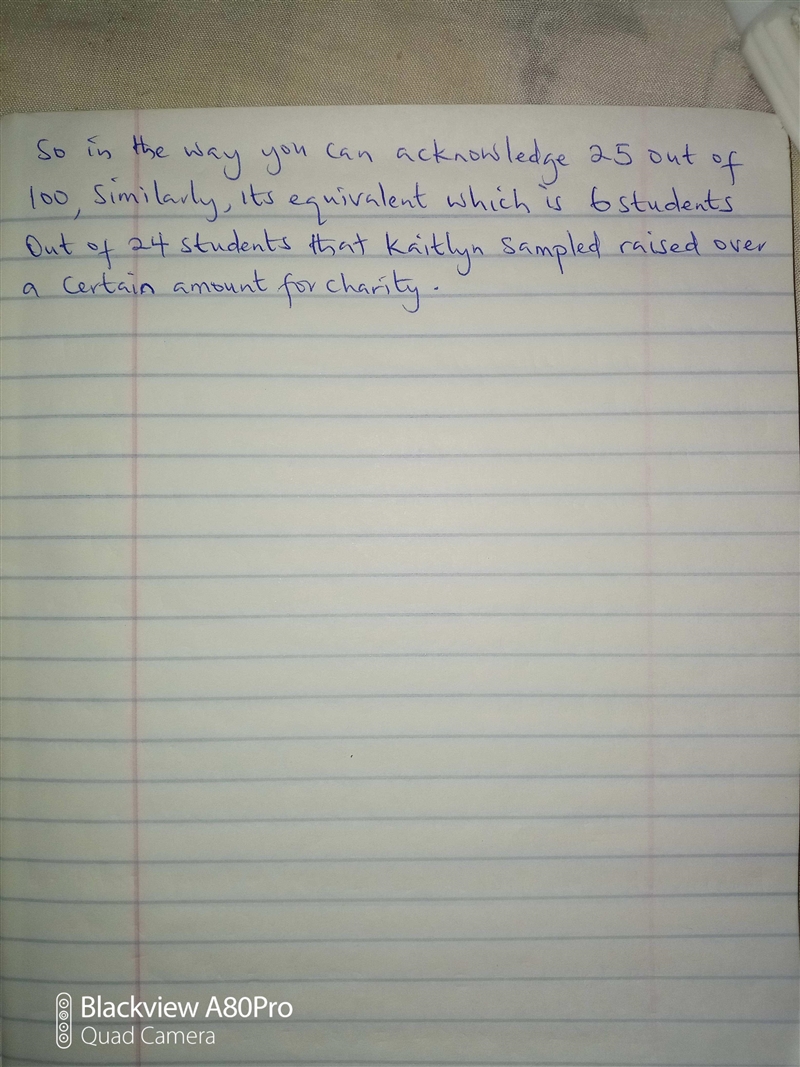 So in the way you can acknowledge 25 out of
100, Similarly, its equivalent which is 6 students
Out of 24 students that Kaitlyn Sampled raised over
a Certain amount for charity.
Blackview A80Pro
Quad Camera